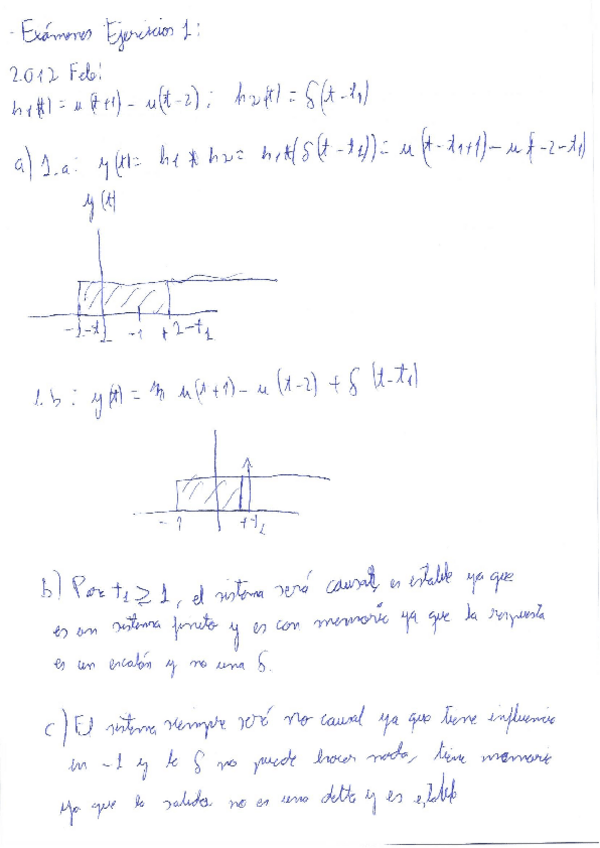 - Exámenes Ejercicios 1:
2.012 Feb:
h1(t) = u(t+1) - u(t-2); h2(t) = δ(t-t1)
a) 1.a: y(t) = h1 * h2 = h1*(δ(t-t1)) = u(t-t1+1) - u(t-2-t1)
y(t)
-1 +2-t1
1.b: y(t) = u(t+1) - u(t-2) + δ(t-t1)
-1 +t1
b) Para t1 ≥ 1, el sistema será causal, es estable ya que
es un sistema finito y es con memoria ya que la respuesta
es un escalón y no una δ.
c) El sistema siempre será no causal ya que tiene influencia
en -1 y la δ no puede hacer nada, tiene memoria
ya que la salida no es una delta y es estable